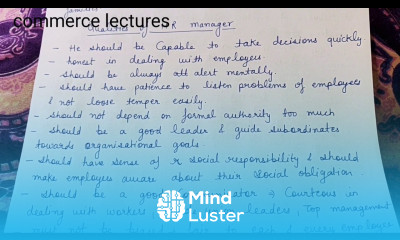 commerce lectures
Qualities manager
- He should be Capable to take decisions quickly.
- honest in dealing with employees
- should be always alert mentally.
- should have patience to listen problems of employees
& not loose temper easily.
- should not depend on formal authority too much
- should be a good leader & guide subordinates
towards organisational goals
- should have sense of social responsibility & should
make employees aware about their social obligation
- should be a good & Courteous in
dealing with workers leaders, Top management
Mind
Luster